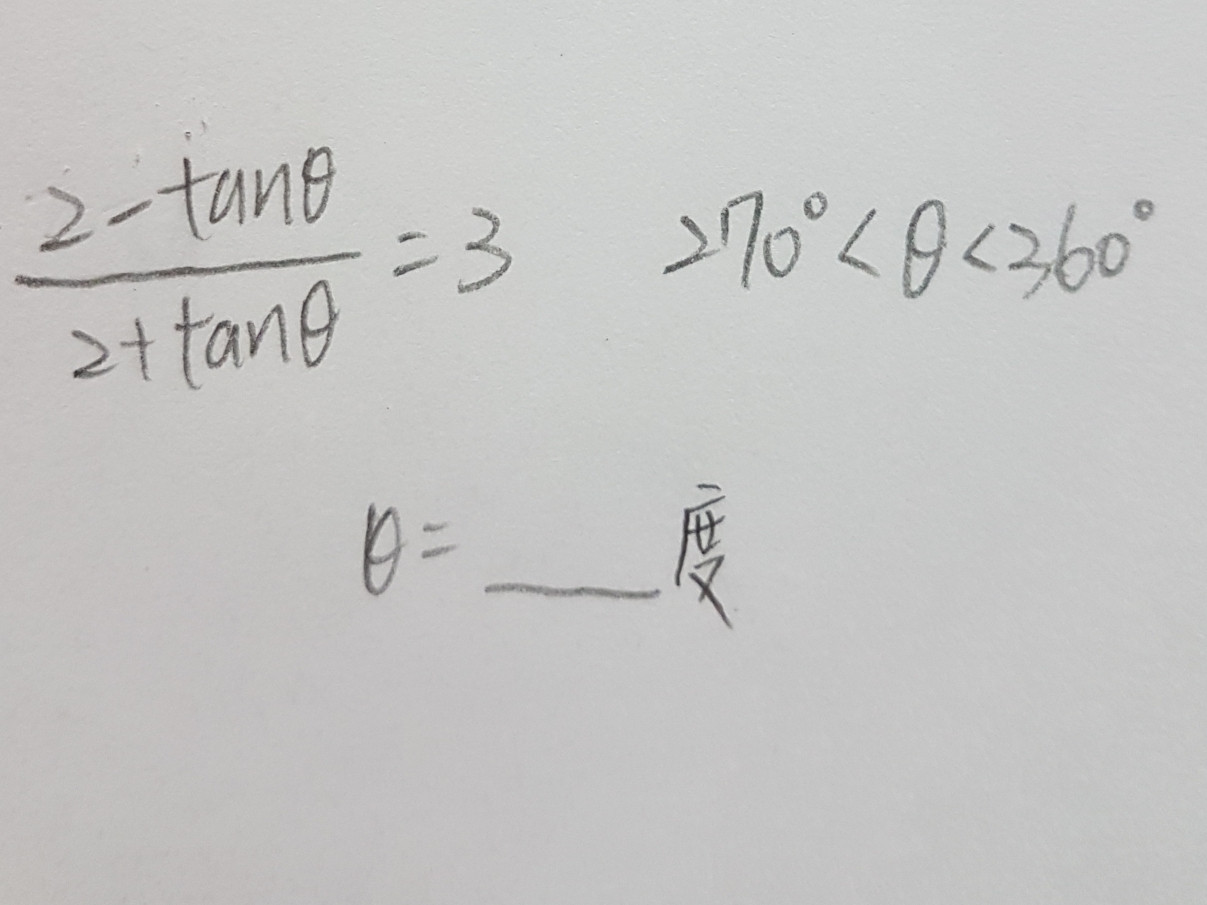 2-tanθ/2+tanθ=3 270°<θ<360°
θ=___度